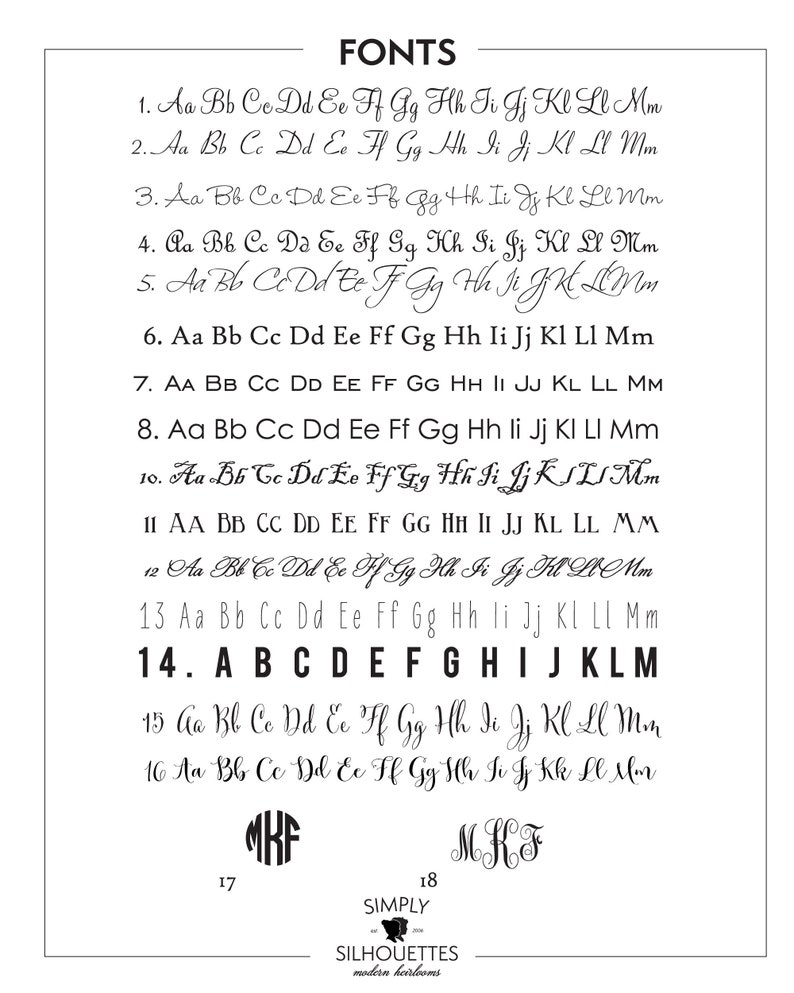 FONTS
1. Aa Bb Cc Dd Ee Ff Gg Hh Ii Jj Kl Ll Mm
2. Aa Bb Cc Dd Ee Ff Gg Hh Ii Jj Kl Ll Mm
3. Aa Bb Cc Dd Ee Ff Gg Hh Ii Jj Kl Ll Mm
4. Aa Bb Cc Dd Ee Ff Gg Hh Ii Jj Kl Ll Mm
5. Aa Bb Cc Dd Ee Ff Gg Hh Ii Jj Kl Ll Mm
6. Aa Bb Cc Dd Ee Ff Gg Hh Ii Jj Kl Ll Mm
7. Aa Bb Cc Dd Ee Ff Gg Hh Ii Jj Kl Ll Mm
8. Aa Bb Cc Dd Ee Ff Gg Hh Ii Jj Kl Ll Mm
10. Aa Bb Cc Dd Ee Ff Gg Hh Ii Jj Kl Ll Mm
11 Aa Bb Cc Dd Ee Ff Gg Hh Ii Jj Kl Ll Mm
12 Aa Bb Cc Dd Ee Ff Gg Hh Ii Jj Kl Ll Mm
13 Aa Bb Cc Dd Ee Ff Gg Hh Ii Jj Kl Ll Mm
14. A B C D E F G H I J K L M
15 Aa Bb Cc Dd Ee Ff Gg Hh Ii Jj Kl Ll Mm
16 Aa Bb Cc Dd Ee Ff Gg Hh Ii Jj Kk Ll Mm
MKF MKF
17 18
SIMPLY
est 2006
SILHOUETTES
modern heirlooms